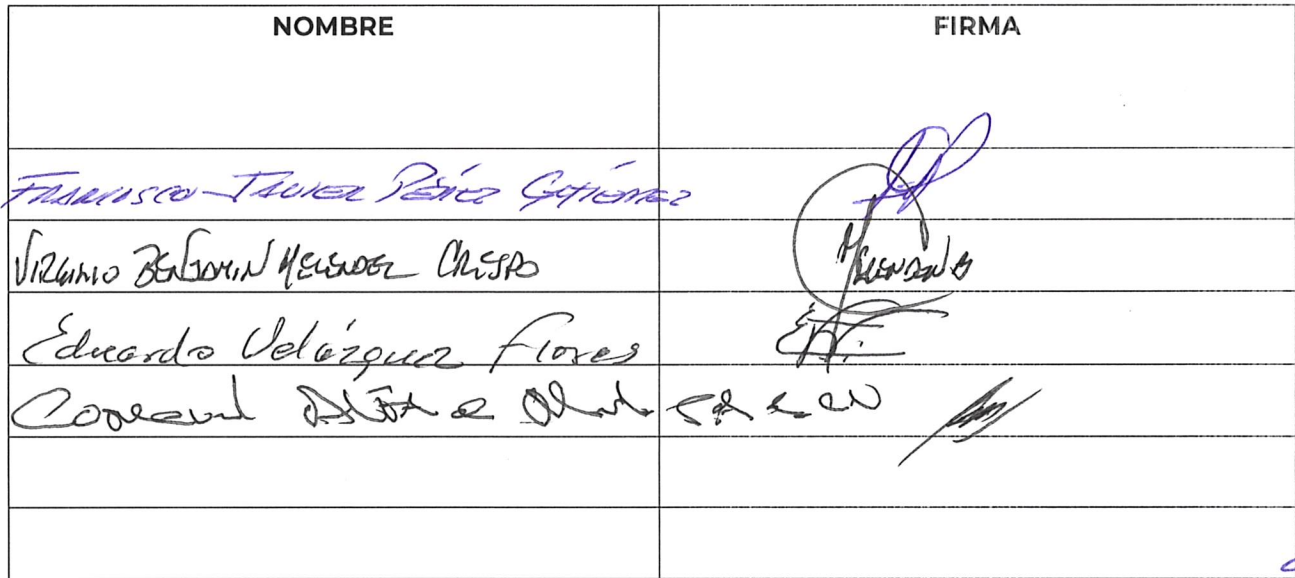 NOMBRE FIRMA
Francisco Javier Pérez Gutiérrez
VIRGINIO BENJAMIN MELENDEZ CRESPO
Eduardo Velázquez Flores
SA de CV